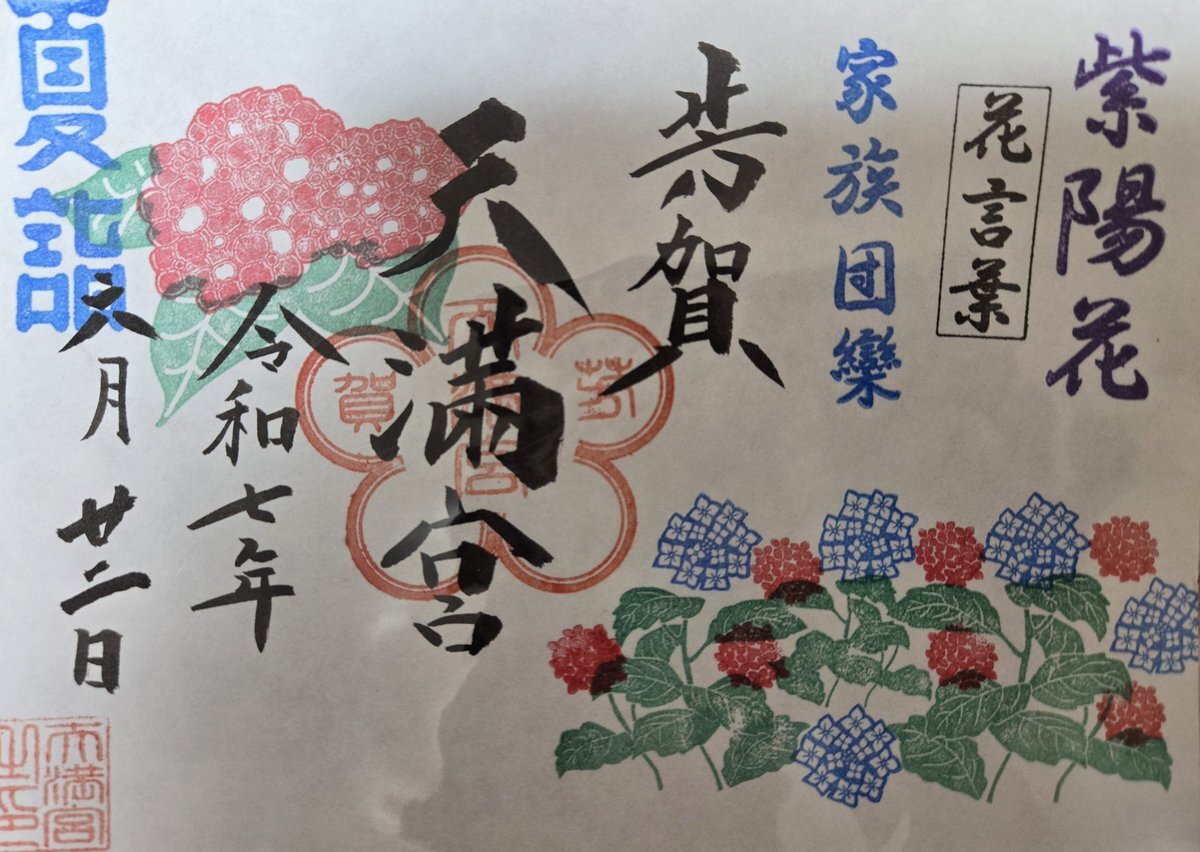 紫陽花
花言葉
家族団欒
芳賀
天満宮
芳
天満宮
賀
令和七年
六月廿二日
夏詣
天満宮
之印